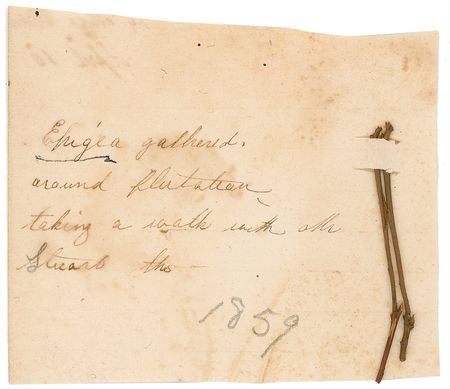 Epigea gathered
around flirtation
taking a walk with Mr
the
1859